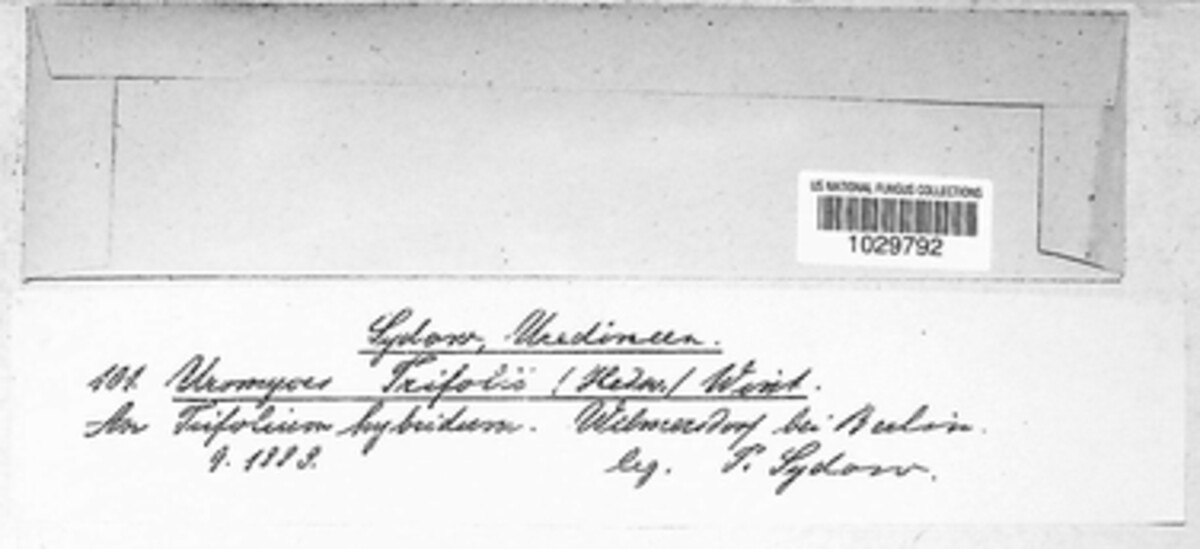 US NATIONAL FUNGUS COLLECTIONS
1029792
Sydow, Uredineen.
101. Uromyces Trifolii (Hedw.) Wint.
An Trifolium hybridum. Wilmersdorf bei Berlin.
9. 1889. leg. P. Sydow.